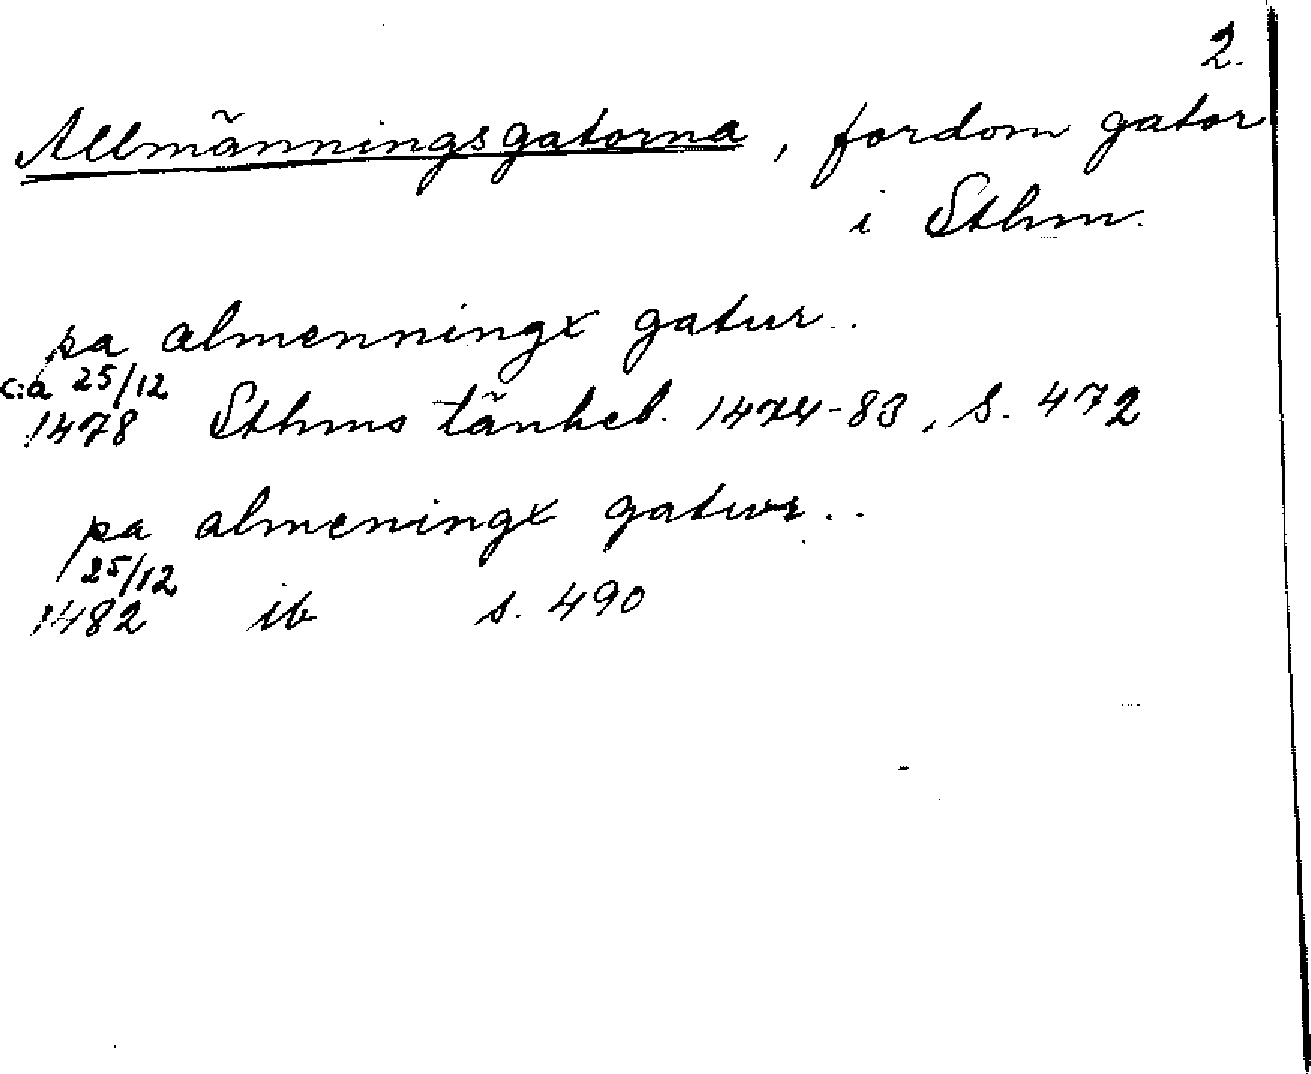 2.
Allmänningsgatorna, fordom gator
i Sthm.
pa almenningx gatur..
c:a 25/12
1478 Sthms tänkeb. 1474-83, s. 472
pa almeningx gatur..
25/12
1482 ib s. 490